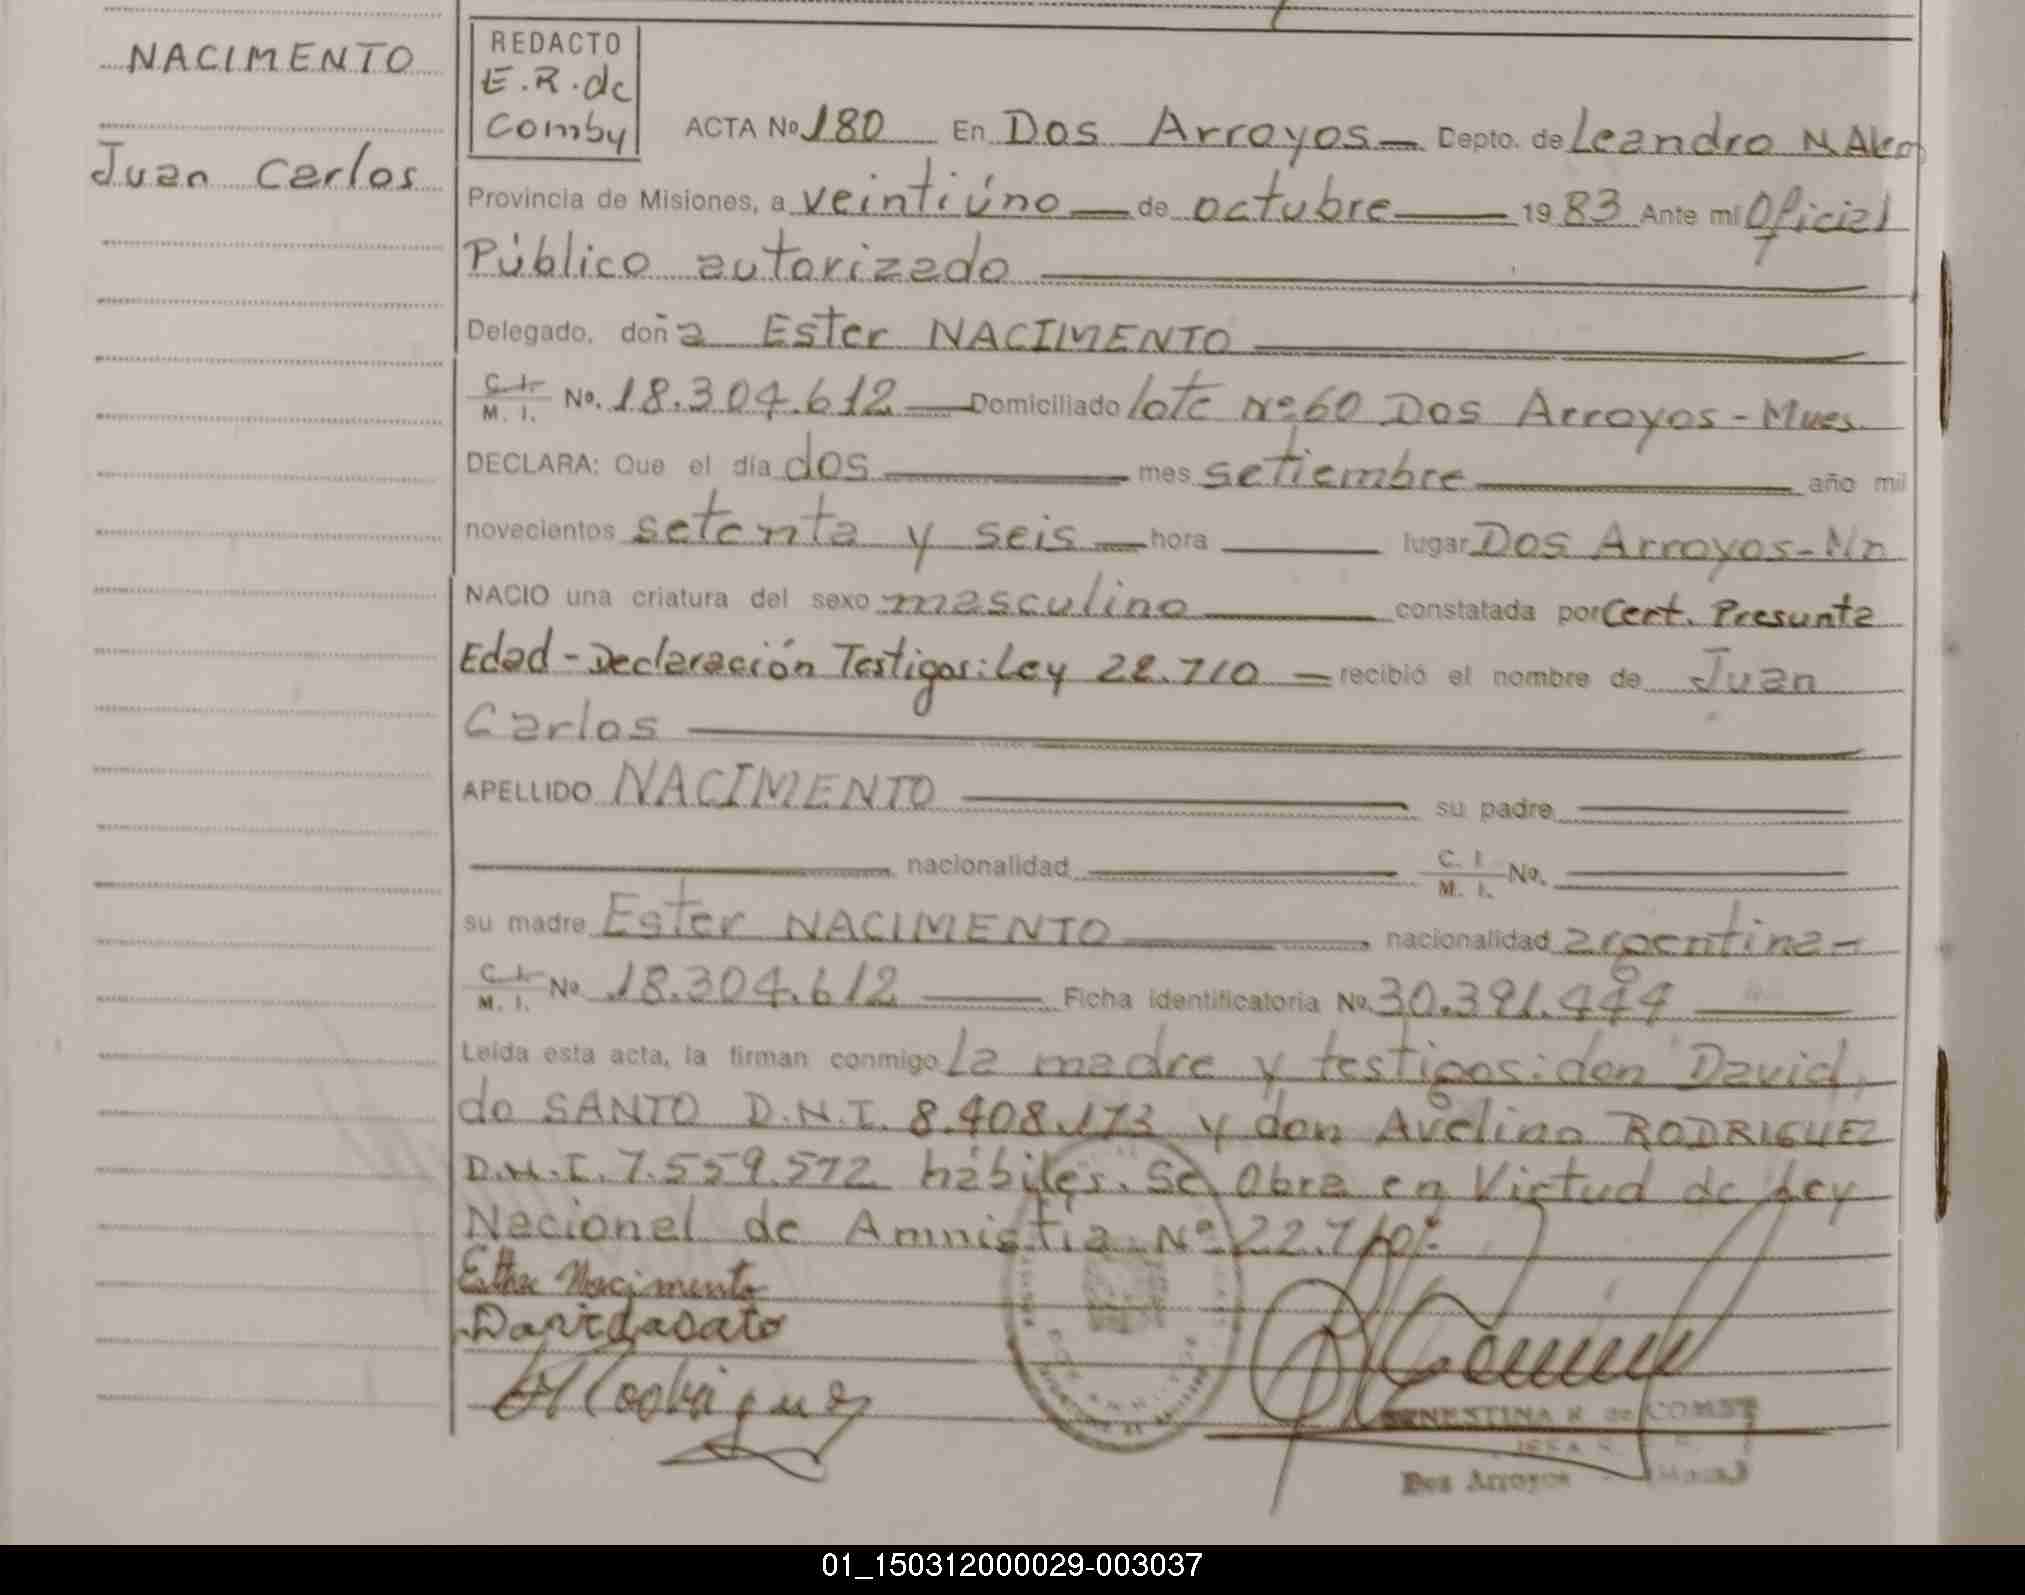 NACIMENTO
Juan Carlos
REDACTO
E.R. de
Comby
ACTA No 180 En Dos Arroyos Depto. de Leandro N. Alem
Provincia de Misiones, a veintiúno de octubre 1983 Ante mi Oficial
Público autorizado
Delegado, doña Ester NACIMENTO
C. I. M. I. No. 18.304.612 Domiciliado lote nº 60 Dos Arroyos - Mnes.
DECLARA: Que el día dos mes setiembre año mil
novecientos setenta y seis hora lugar Dos Arroyos - Mn
NACIO una criatura del sexo masculino constatada por Cert. Presunta
Edad - Declaración Testigos: Ley 22.710 recibió el nombre de Juan
Carlos
APELLIDO NACIMENTO su padre
nacionalidad C. I. M. I. No.
su madre Ester NACIMENTO nacionalidad argentina
C. I. M. I. No 18.304.612 Ficha identificatoria No. 30.391.449
Leída esta acta, la firman conmigo la madre y testigos: don David
do SANTO D.N.I. 8.408.173 y don Avelino RODRIGUEZ
D.N.I. 7.559.572 hábiles. Se Obra en Virtud de Ley
Nacional de Amnistia Nº 22.710.
Ester Nacimento
ERNESTINA R. de COMBY
Dos Arroyos
01_150312000029-003037